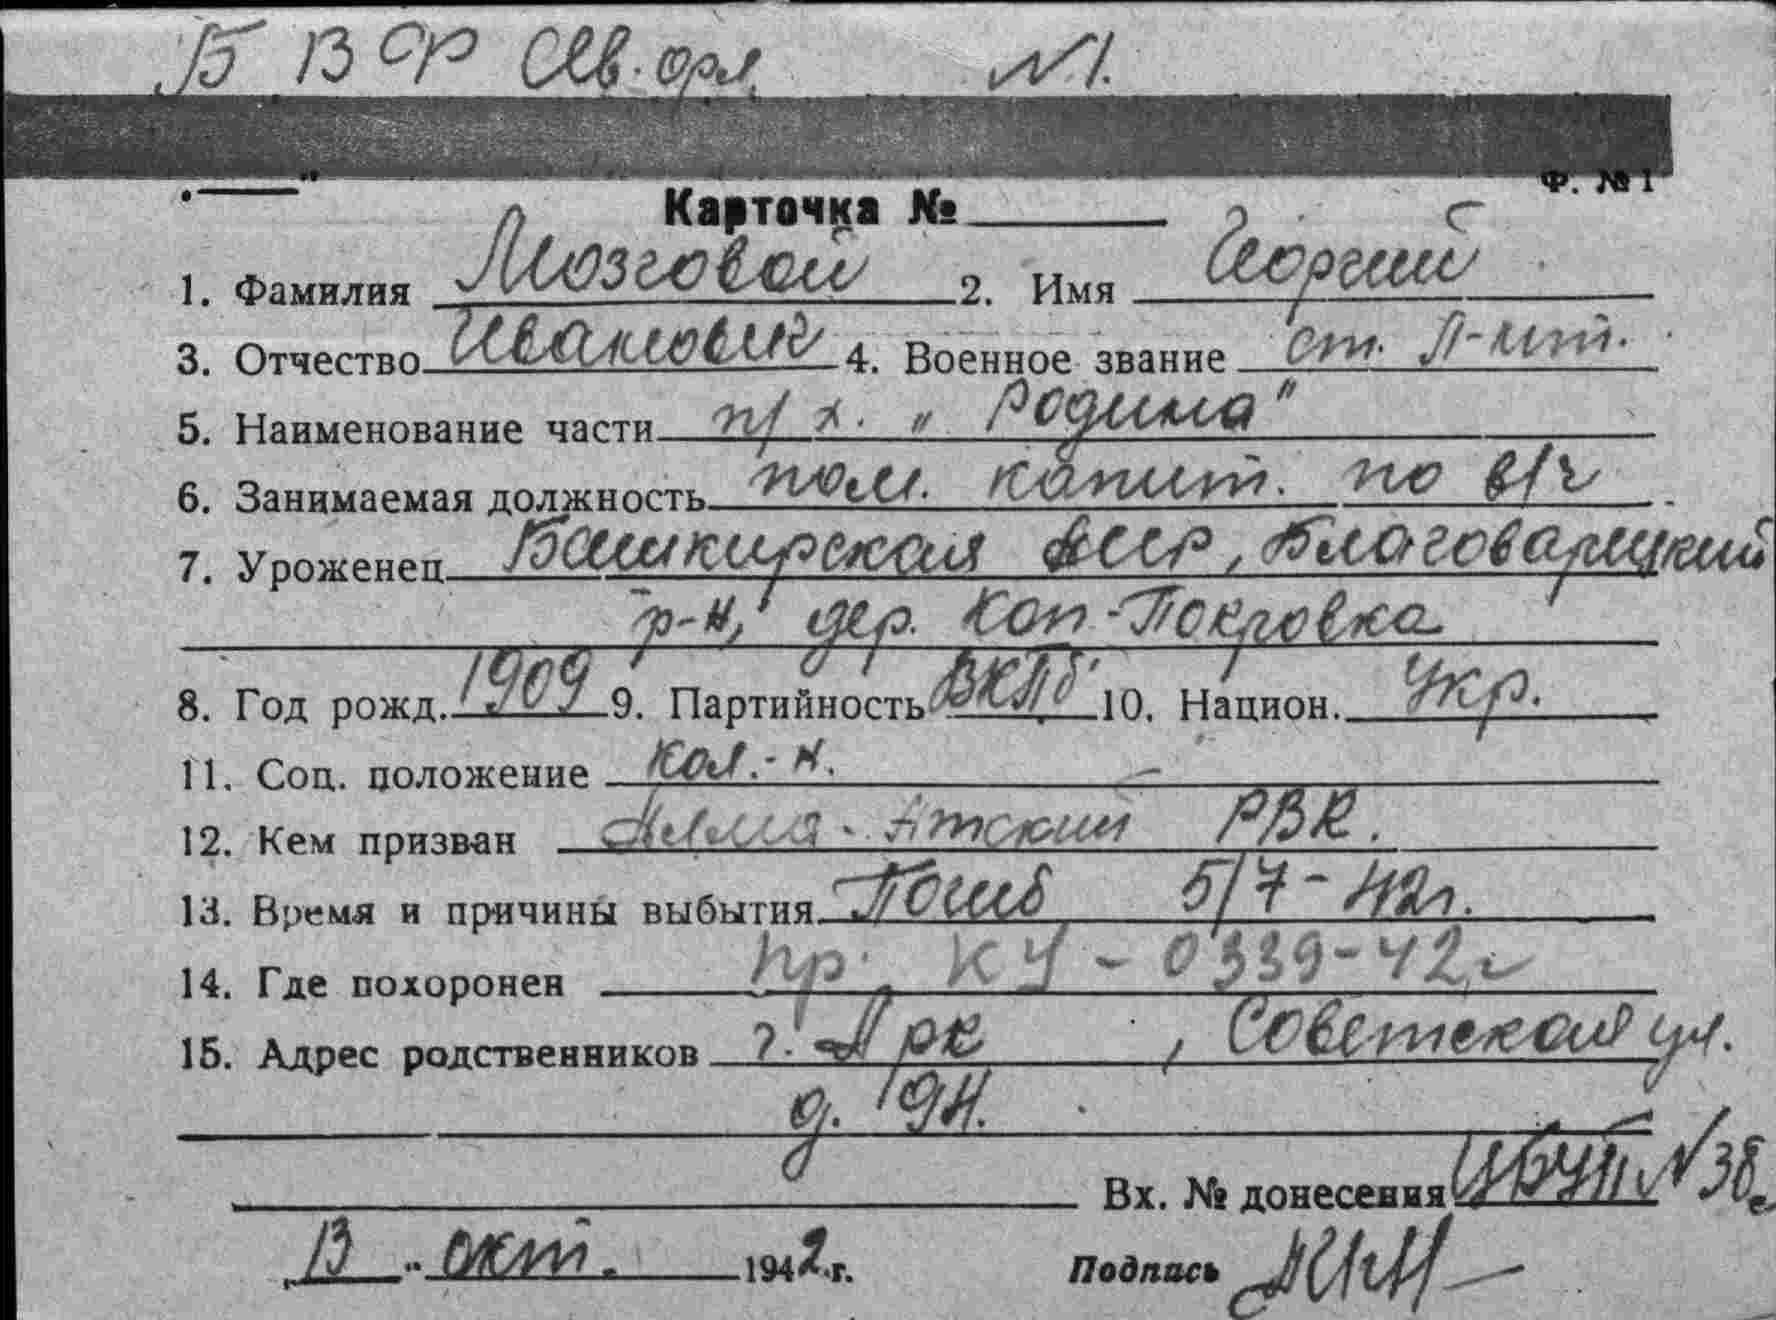 Б ВСР Азв. орл. №1.
Ф. № 1
Карточка №
1. Фамилия Мозговой 2. Имя Георгий
3. Отчество Иванович 4. Военное звание ст. л-нт.
5. Наименование части п/х. „Родина"
6. Занимаемая должность пом. капит. по в/ч
7. Уроженец Башкирская АССР, Благоварецкий
р-н, дер. Коп-Покровка
8. Год рожд. 1909 9. Партийность ВКПб 10. Национ. Укр.
11. Соц. положение кол.-н.
12. Кем призван Алма-Атский РВК.
13. Время и причины выбытия Погиб 5/7-42г.
14. Где похоронен пр. КУ-0339-42г
15. Адрес родственников г. , Советская ул.
д. 94.
Вх. № донесения ЦБУП № 38
"13" окт. 1942 г. Подпись